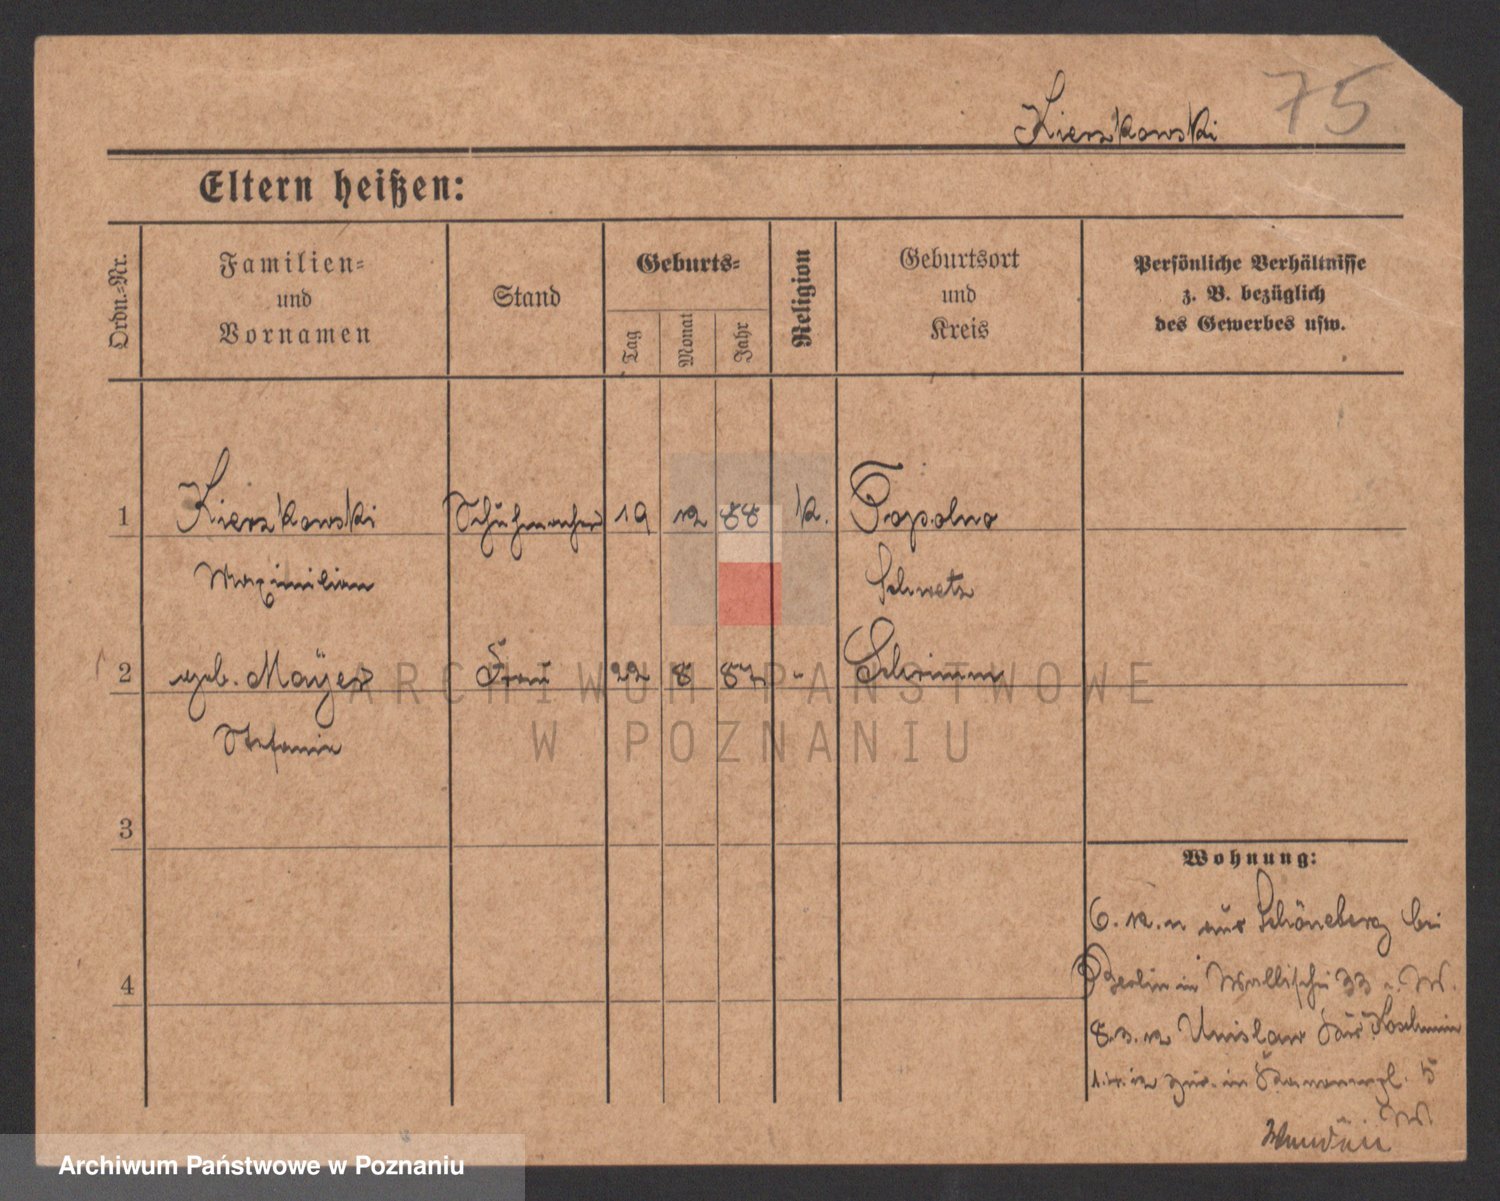 75
Kierzkowski
Eltern heißen:
Ordn.-Nr.
Familien-
und
Vornamen
Stand
Geburts-
Tag
Monat
Jahr
Religion
Geburtsort
und
Kreis
Persönliche Verhältnisse
z. B. bezüglich
des Gewerbes usw.
1 Kierzkowski Schuhmacher 19 12 88 k. Topolno
Maximilian Schwetz
2 geb. Mayer Frau 22 8 87 - Schrimm
Stefanie
3
4
Wohnung:
6. 12. 11 aus Schöneberg bei
Berlin in Wallischei 33 b. W.
8. 3. 12 Unislaw Koschmin
1. 4. 12 zur. in 5
W.
ARCHIWUM PAŃSTWOWE
W POZNANIU
Archiwum Państwowe w Poznaniu